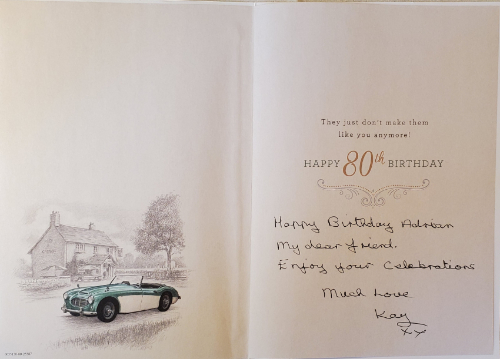 They just don't make them
like you anymore!
HAPPY 80th BIRTHDAY
Happy Birthday Adrian
My dear friend.
Enjoy your Celebrations
Much Love
Kay
xx